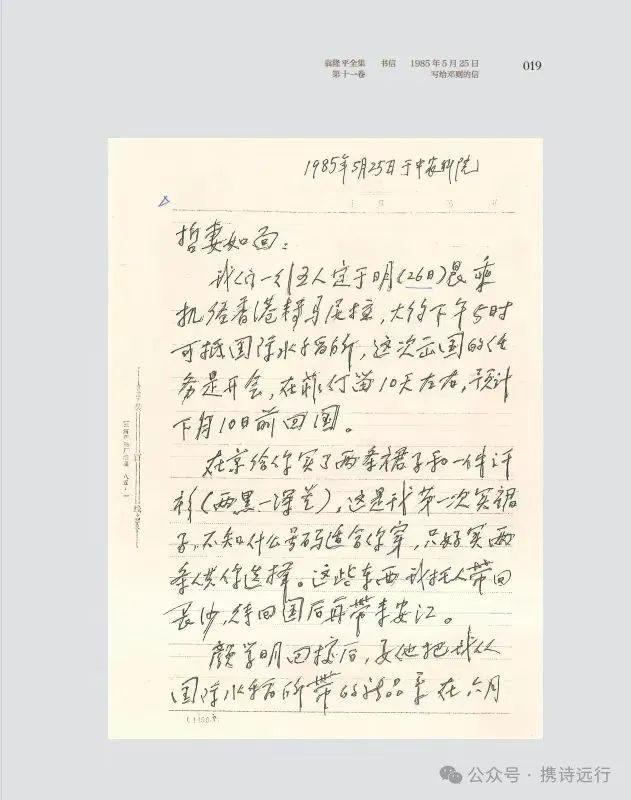 袁隆平全集 书信 1985年5月25日 019
第十一卷 写给邓则的信
1985年5月25日于中农科院
哲妻如面：
我们一行五人定于明(26日)晨乘
机经香港转马尼拉，大约下午5时
可抵国际水稻所，这次出国的任
务是开会，在菲停留10天左右，预计
下月10日前回国。
在京给你买了两条裙子和一件汗
衫(两黑一深兰)，这是我第一次买裙
子，不知什么号码适合你穿，只好买两
条供你选择。这些东西我托人带回
长沙，待回国后再带来安江。
颜学明回校后，要他把我从
国际水稻所带的 品系在六月
公众号·携诗远行